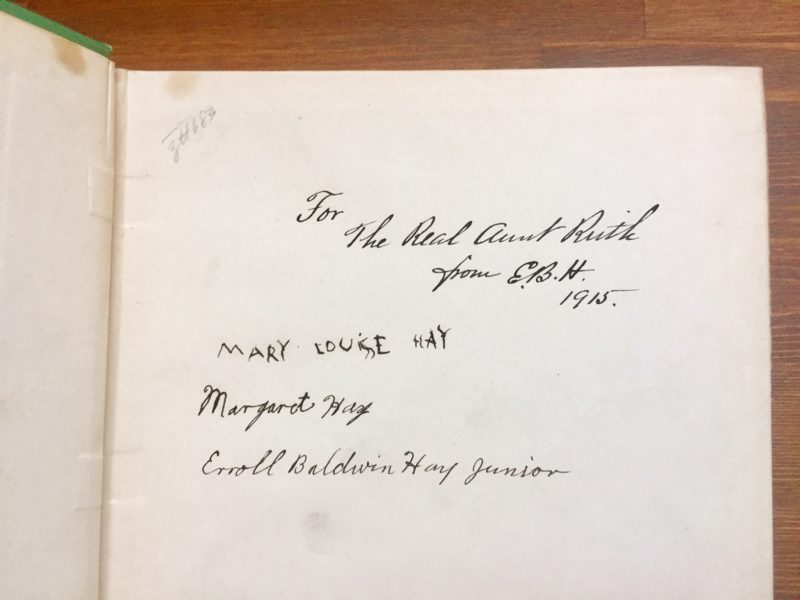 For
The Real Aunt Ruth
from E.B.H.
1915.
MARY LOUISE HAY
Margaret Hay
Erroll Baldwin Hay Junior